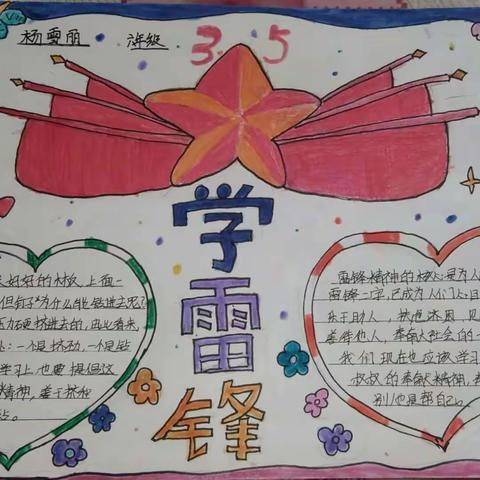 杨雪丽 六年级 3 5
学
雷
锋
好好的木板,上面一
但钉子为什么能钻进去呢?
压力硬挤进去的,由此看来,
:一个是挤劲,一个是钻
学习上,也要提倡这
精神,善于挤和
钻。
雷锋精神的核心是为人
雷锋一字,已成为人们心目
乐于助人,扶危济困,见
善待他人,奉献社会的一
我们现在也应该学习
叔叔的奉献精神,帮
别人也是帮自己。